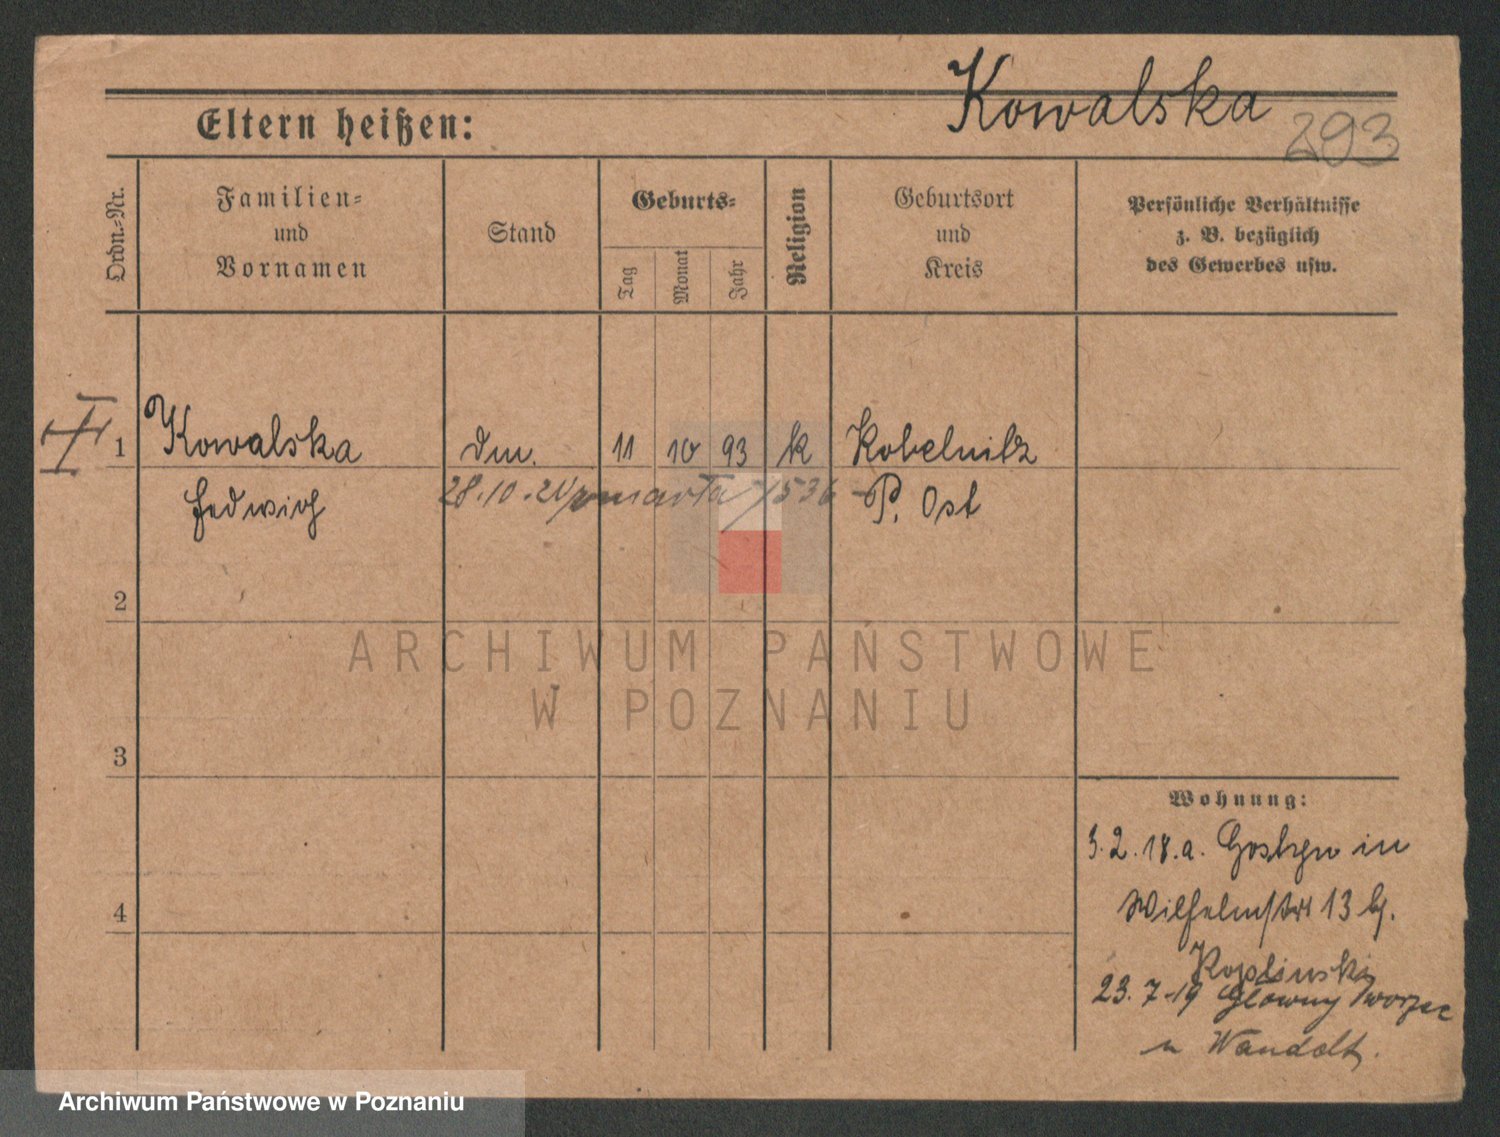 Kowalska
293
Eltern heißen:
Ordn.=Nr.
Familien=
und
Vornamen
Stand
Geburts=
Tag
Monat
Jahr
Religion
Geburtsort
und
Kreis
Persönliche Verhältnisse
z. B. bezüglich
des Gewerbes usw.
1
Kowalska
Hedwich
11 10 93 k
Kobelnitz
P. Ost
28.10.21 zmarła 1536
2
ARCHIWUM PAŃSTWOWE
W POZNANIU
3
Wohnung:
3.2.18.a. Gostyn in
Wilhelmstr 13 b.
4
23.7-19 Główny Dworzec
u
Archiwum Państwowe w Poznaniu